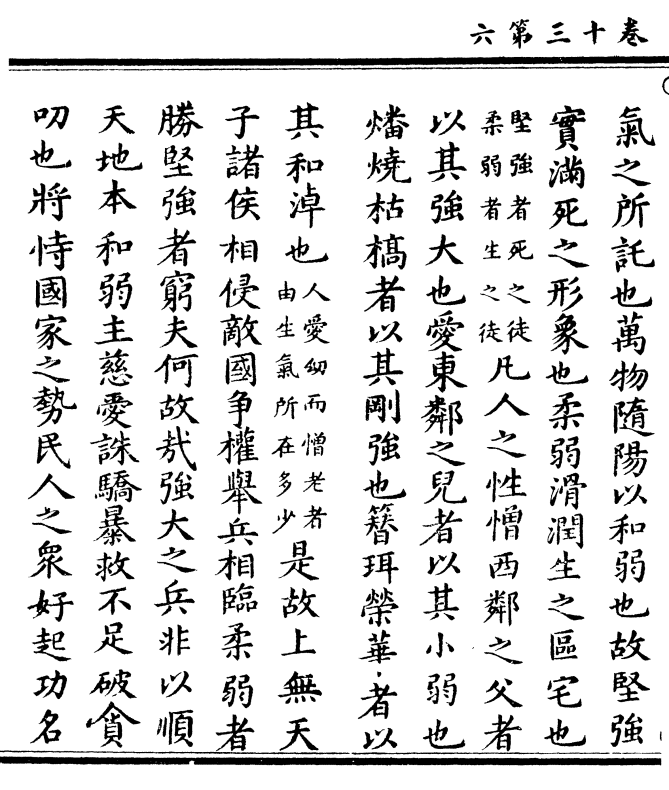 卷十三第六
氣之所託也萬物隨陽以和弱也故堅強
實滿死之形象也柔弱滑潤生之區宅也
堅強者死之徒
柔弱者生之徒
凡人之性憎西鄰之父者
以其強大也愛東鄰之兒者以其小弱也
燔燒枯槁者以其剛強也簪珥榮華者以
其和淖也
人愛幼而憎老者
由生氣所在多少
是故上無天
子諸侯相侵敵國爭權舉兵相臨柔弱者
勝堅強者窮夫何故哉強大之兵非以順
天地本和弱主慈愛誅驕暴救不足破貪
叨也將恃國家之勢民人之眾好起功名